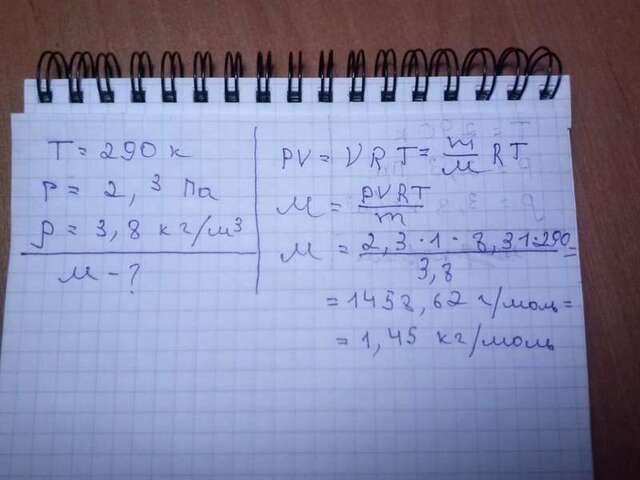 T = 290 К
P = 2, 3 Па
ρ = 3, 8 кг/м³
M - ?
PV = νRT = m/M RT
M = PVRT/m
M = 2,3·1·8,31·290/3,8 =
= 1458,62 г/моль =
= 1,45 кг/моль